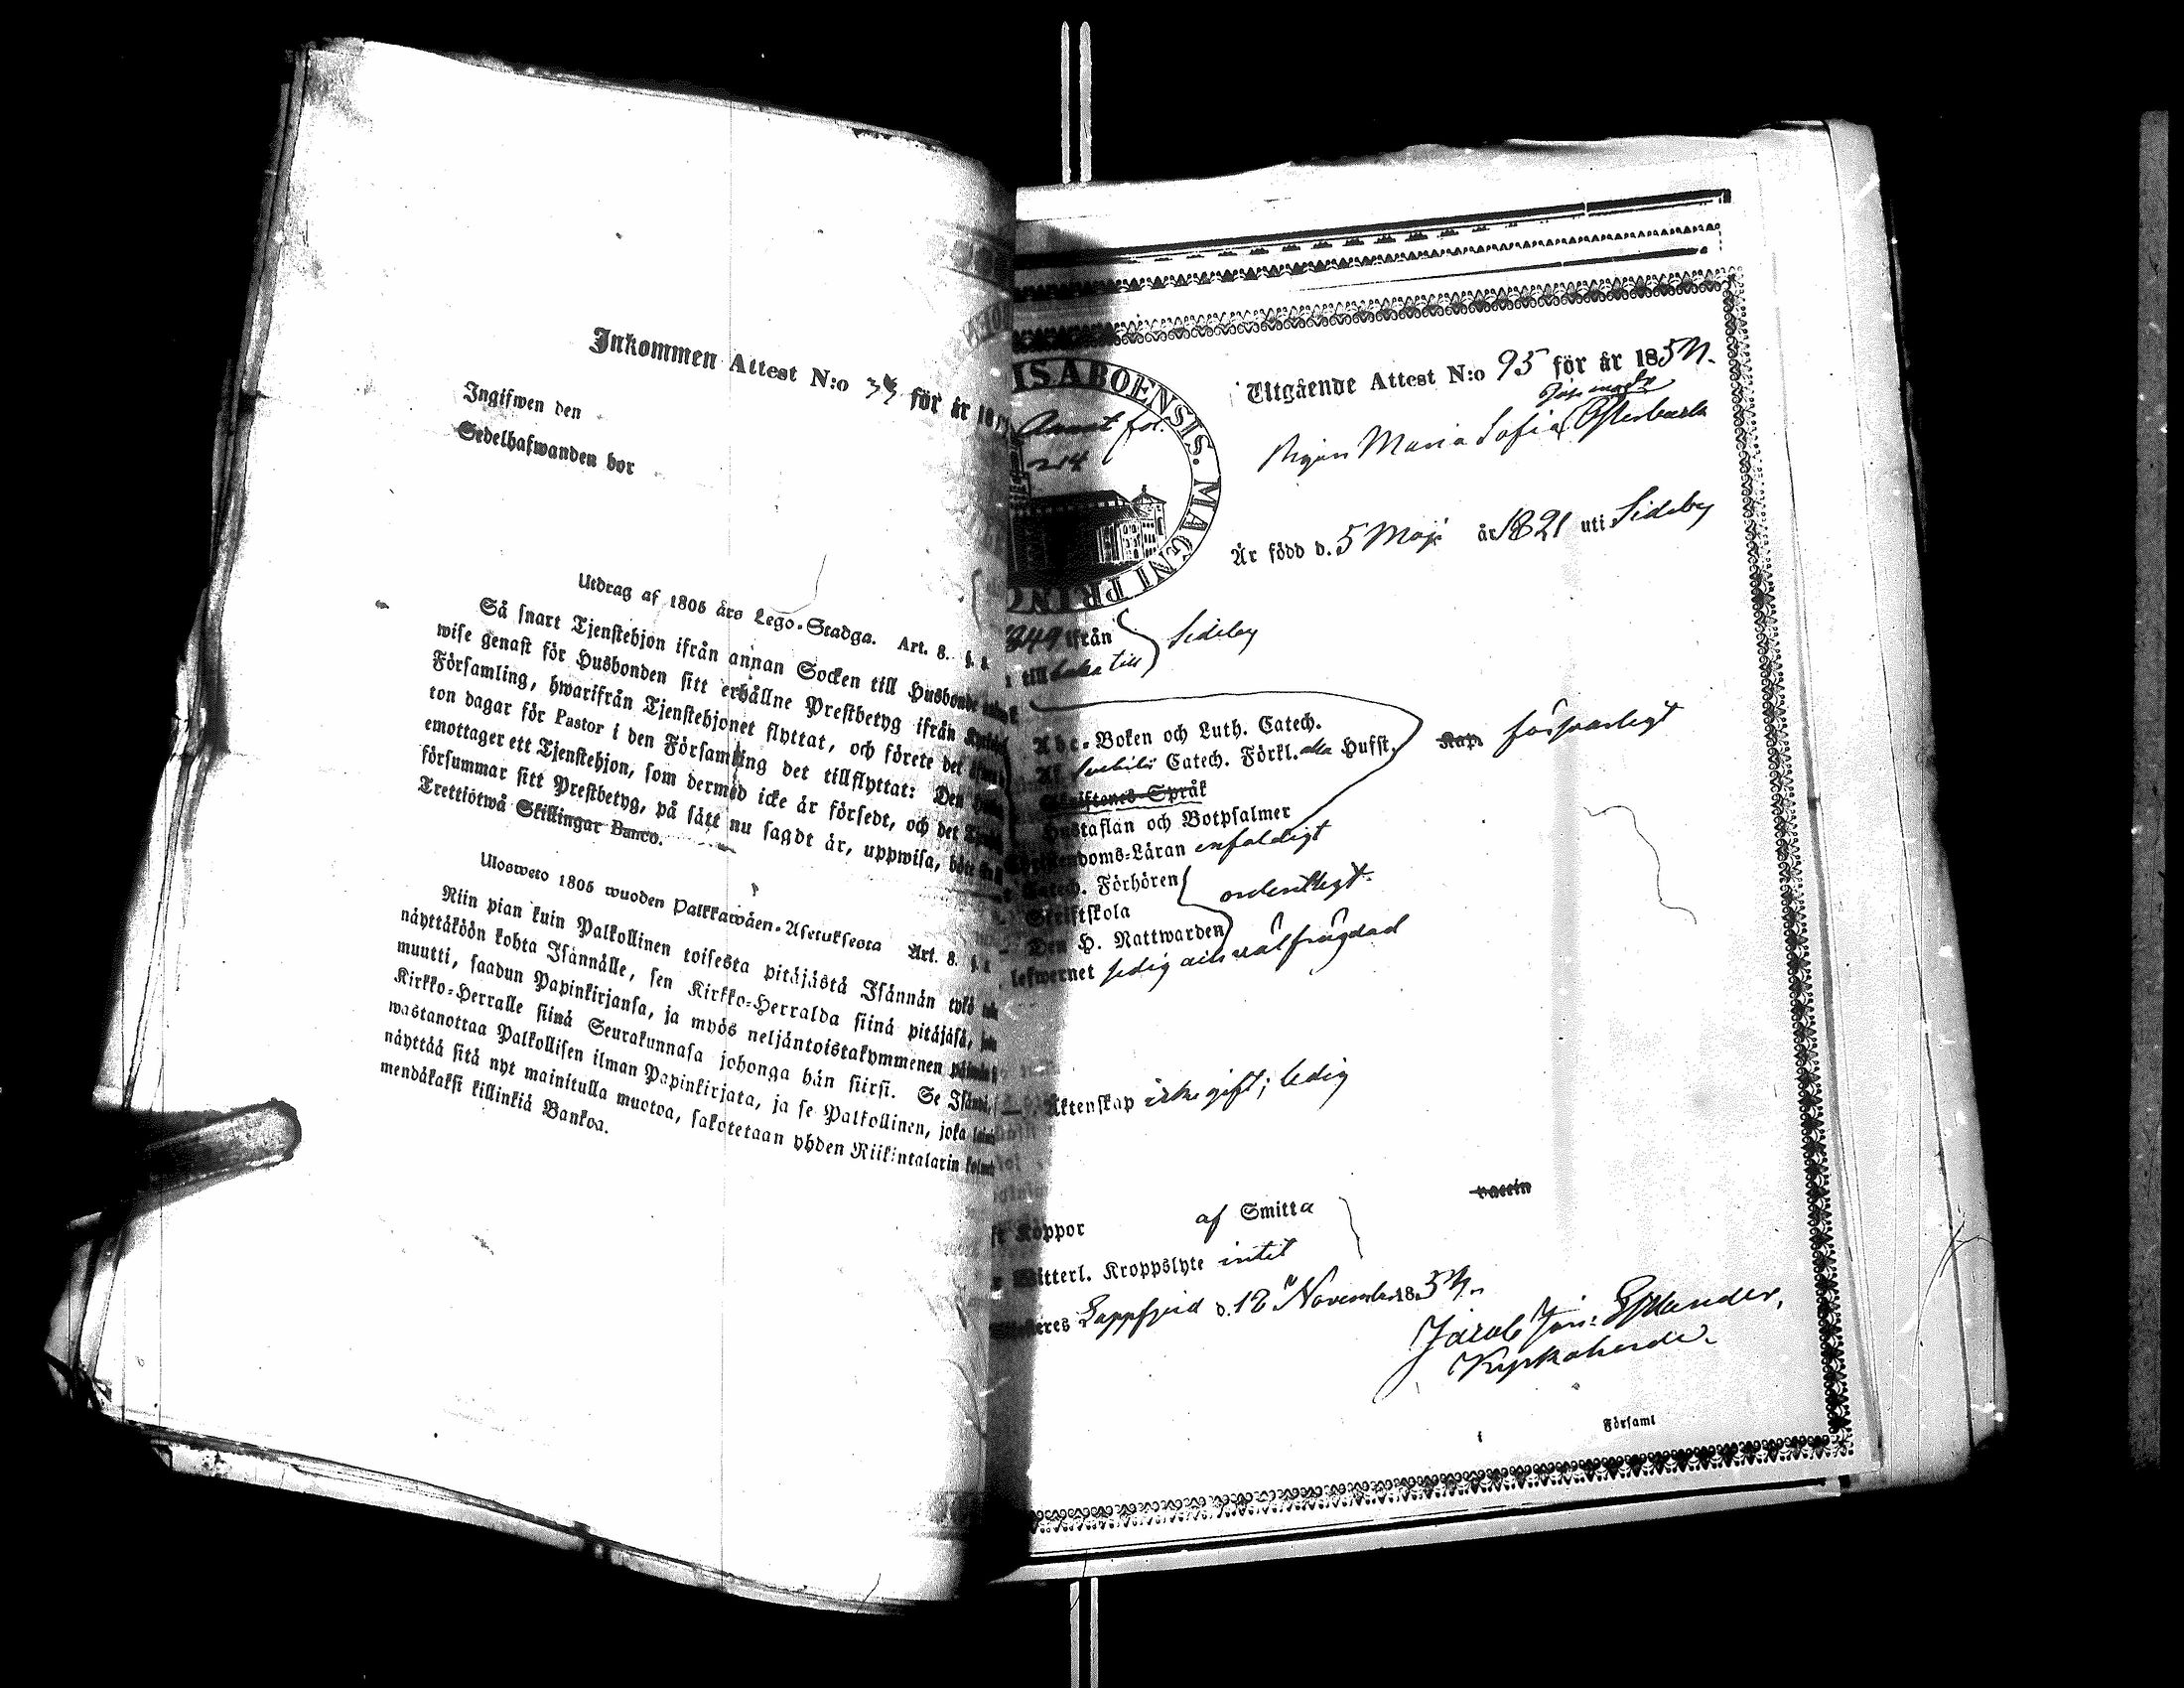 Inkommen Attest N:o för år 18
Ingifwen den
Sedelhafwanden bor
Utdrag af 1805 års Lego-Stadga. Art. 8. §.
Så snart Tjenstehjon ifrån annan Socken till Husbonde
wise genast för Husbonden sitt erhållne Prestbetyg ifrån
Församling, hwarifrån Tjenstehjonet flyttat, och förete det
ton dagar för Pastor i den Församling det tillflyttat: Den
emottager ett Tjenstehjon, som dermed icke är försedt, och det
försummar sitt Prestbetyg, på sätt nu sagdt är, uppwisa, böte
Trettiotwå Skillingar Banco.
Ulosweto 1805 wuoden Palkkawäen-Asetuksesta Art. 8. §.
Niin pian kuin Palkollinen toisesta pitäjästä Isännän tykö
näyttäköön kohta Isännälle, sen Kirkko-Herralda siinä pitäjäsä,
muutti, saadun Papinkirjansa, ja myös neljäntoistakymmenen
Kirkko-Herralle siinä Seurakunnasa johonga hän siirsi. Se
wastanottaa Palkollisen ilman Papinkirjata, ja se Palkollinen, joka
näyttää sitä nyt mainitulla muotoa, sakotetaan yhden Riikintalarin
mendäkaksi killinkiä Bankoa.
ISABOENSIS. MAGNI PRINC
fol.
Utgående Attest N:o 95 för år 185
Pigan Maria Sofia Österback
Är född d. 5 Maji år 1821 uti Sideby
849 ifrån
till Sideby
Abc-Boken och Luth. Catech.
Catech. Förkl. Husst. Kap. försvarligt
Skriftenes Språk
Hustaflan och Botpsalmer
Christendoms-Läran enfaldigt
Catech. Förhören
Skriftskola ordentligt
Den H. Nattwarden
lefwernet sedig och välfrägdad
Äktenskap icke gift; ledig
vaccin
Koppor af Smitta
Witterl. Kroppslyte intet
Lappfjerd d. 12 November 185
Kyrkoherde
Församl